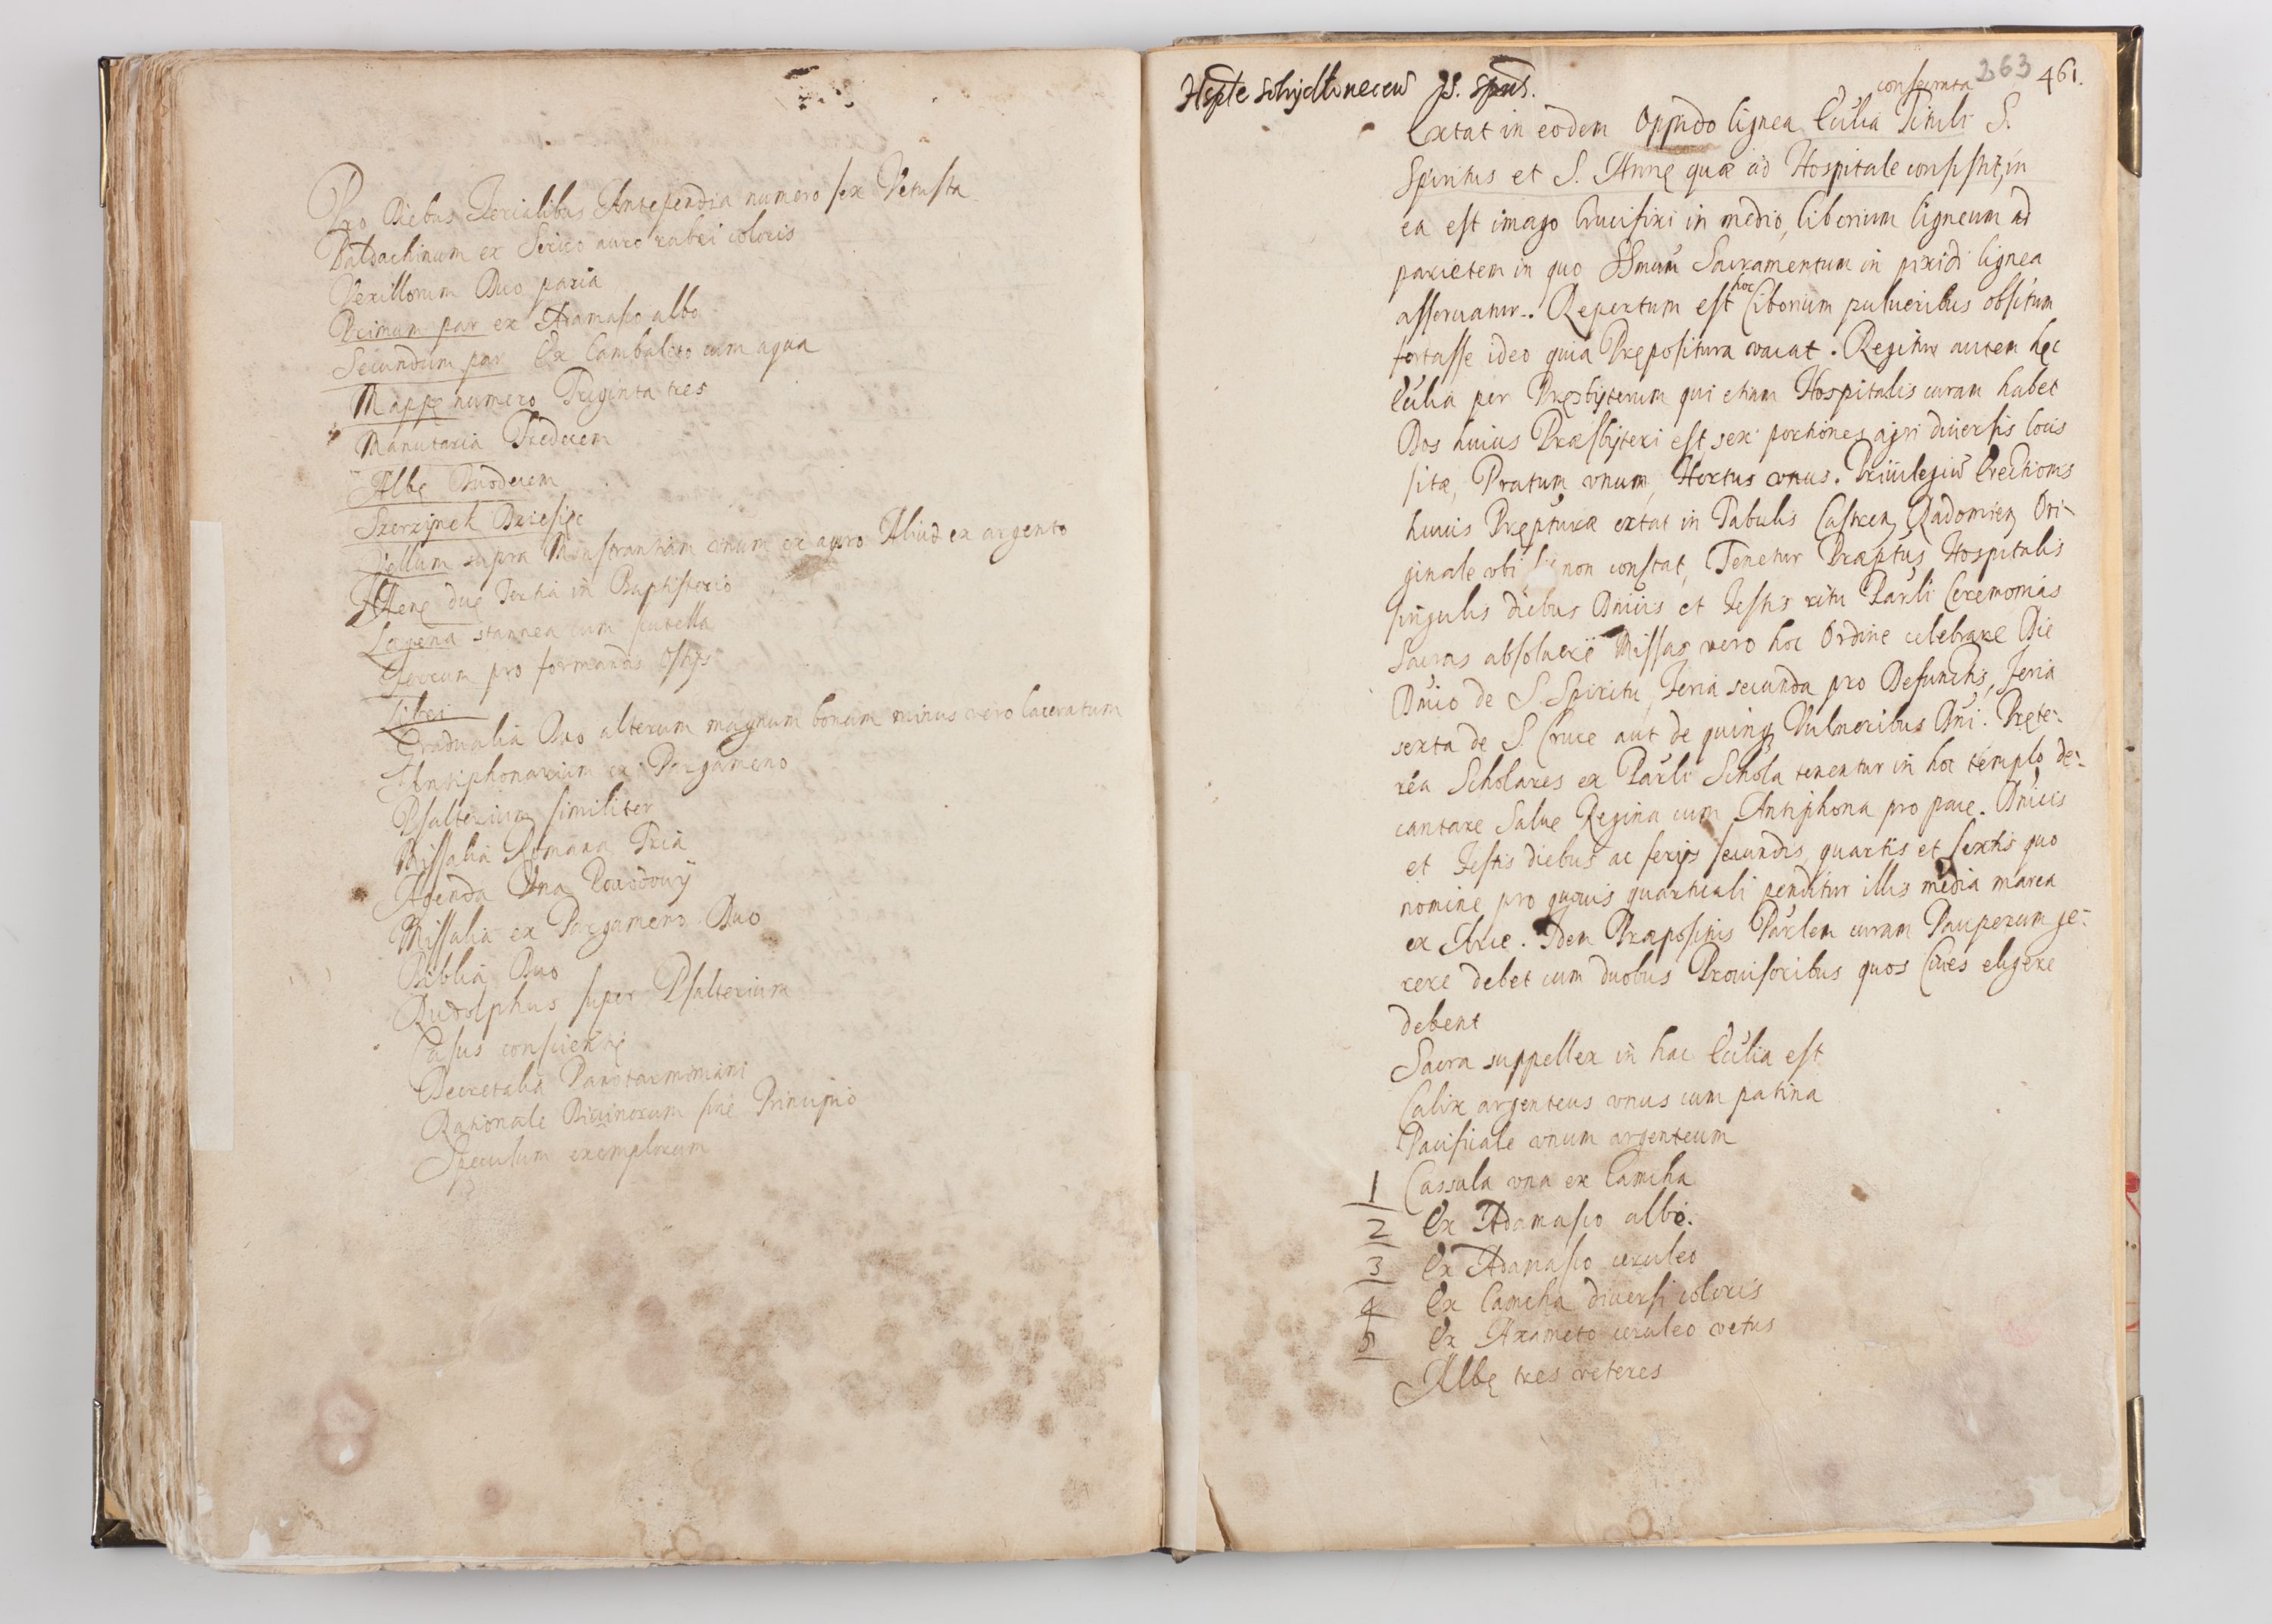 Pro Diebus Ferialibus Antependia numero sex Vetusta
Baldachinum ex Serico auro rubri coloris
Vexillorum Duo paria
Primum par ex Adamasco albo
Secundum par Ex Cambeleto cum aqua
Mappę numero Triginta tres
Manutaria Tredecem
Albę Duodecem
Skrzynek Dziesięc
Vellum supra Monstrantiam unum ex auro Aliud ex argento
duę Tertia in Baptisterio
Lagena stannea cum scutella
Ferrum pro formandis Ostijs
Libri
Gradualia Duo alterum magnum bonum minus vero laceratum
Antiphonarium ex Pargameno
Psalterium similiter
Missalia Romana Tria
Agenda Una Powodowy
Missalia ex Pargameno Duo
Biblia Duo
Rudolphus super Psalterium
Casus conscientię
Decretalia
Rationale Divinorum sine Principio
Speculum exemplorum
Hspte Schydłovecen S. Sptus.
263 461.
consecrata
Extat in eodem Oppido lignea Ecclia Tituli S.
Spiritus et S. Annę quæ ad Hospitale consistit, in
ea est imago Crucifixi in medio, Ciborium ligneum ad
parietem in quo SSmum Sacramentum in pixidi lignea
asservatur. Repertum est hoc Ciborium pulueribus obsitum
fortasse ideo quia Prępositura vacat. Regitur autem hęc
Ecclia per Pręsbyterum qui etiam Hospitalis curam habet
Dos huius Præsbyteri est sex portiones agri diuersis locis
sitæ, Pratum vnum, Hortus vnus. Priuilegiũ Erectionis
huius Prępturæ extat in Tabulis Castren Radomien Ori-
ginale vbi non constat, Tenetur Præptus Hospitalis
singulis diebus Dnicis et Festis ritu Parli Ceremonias
Sacras absoluere Missas vero hoc Ordine celebrare Die
Dnico de S. Spiritu, Feria secunda pro Defunctis, Feria
sexta de S. Cruce aut de quinq Vulneribus Dni. Pręte-
rea Scholares ex Parli Schola tenentur in hoc templo de-
cantare Salue Regina cum Antiphona pro pace. Dnicis
et Festis diebus ac ferijs secundis quartis et sextis quo
nomine pro quouis quartuali penditur illis media marca
ex Arce. Idem Præpositus Parlem curam Pauperum ge-
rere debet cum duobus Prouisoribus quos Ciues eligere
debent
Sacra suppellex in hac Ecclia est
Calix argenteus vnus cum patina
Pacificale vnum argenteum
1 Cassula vna ex Camcha
2 Ex Adamasco albo.
3 Ex Adamasco ceruleo
4 Ex Camcha diuersi coloris
5 Ex Axameto ceruleo vetus
Albę tres veteres